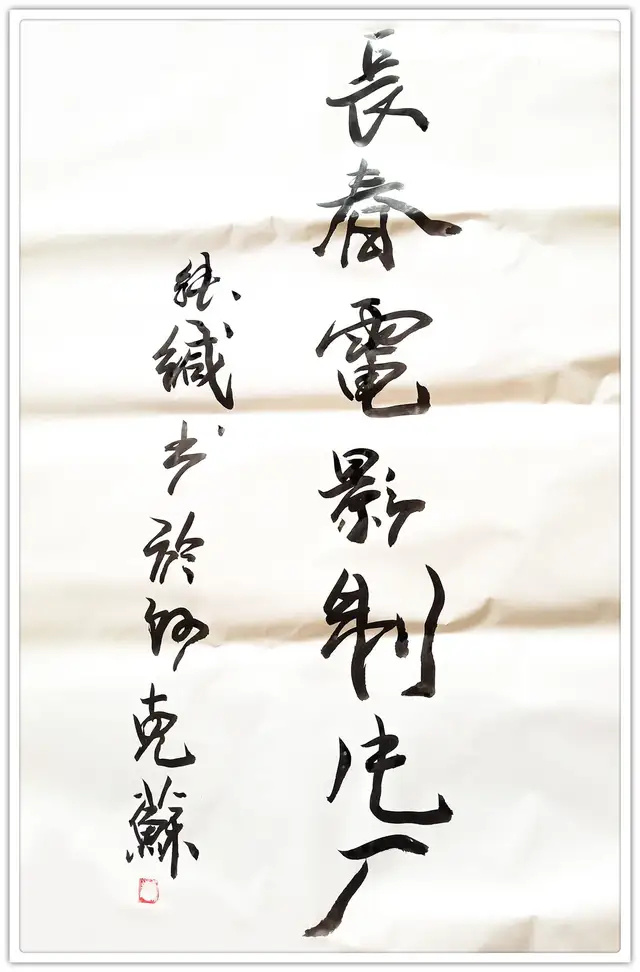 長春電影制片厂
张缄书於阿克蘇